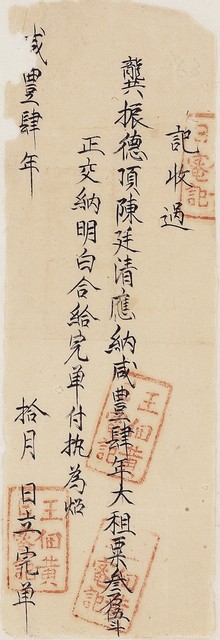 記收過
龔振德頂陳廷清應納咸豐肆年大租粟叁石
正交納明白合給完單付执為炤
咸豐肆年 拾月 日立完單
王佃黃
記
王佃黃
記